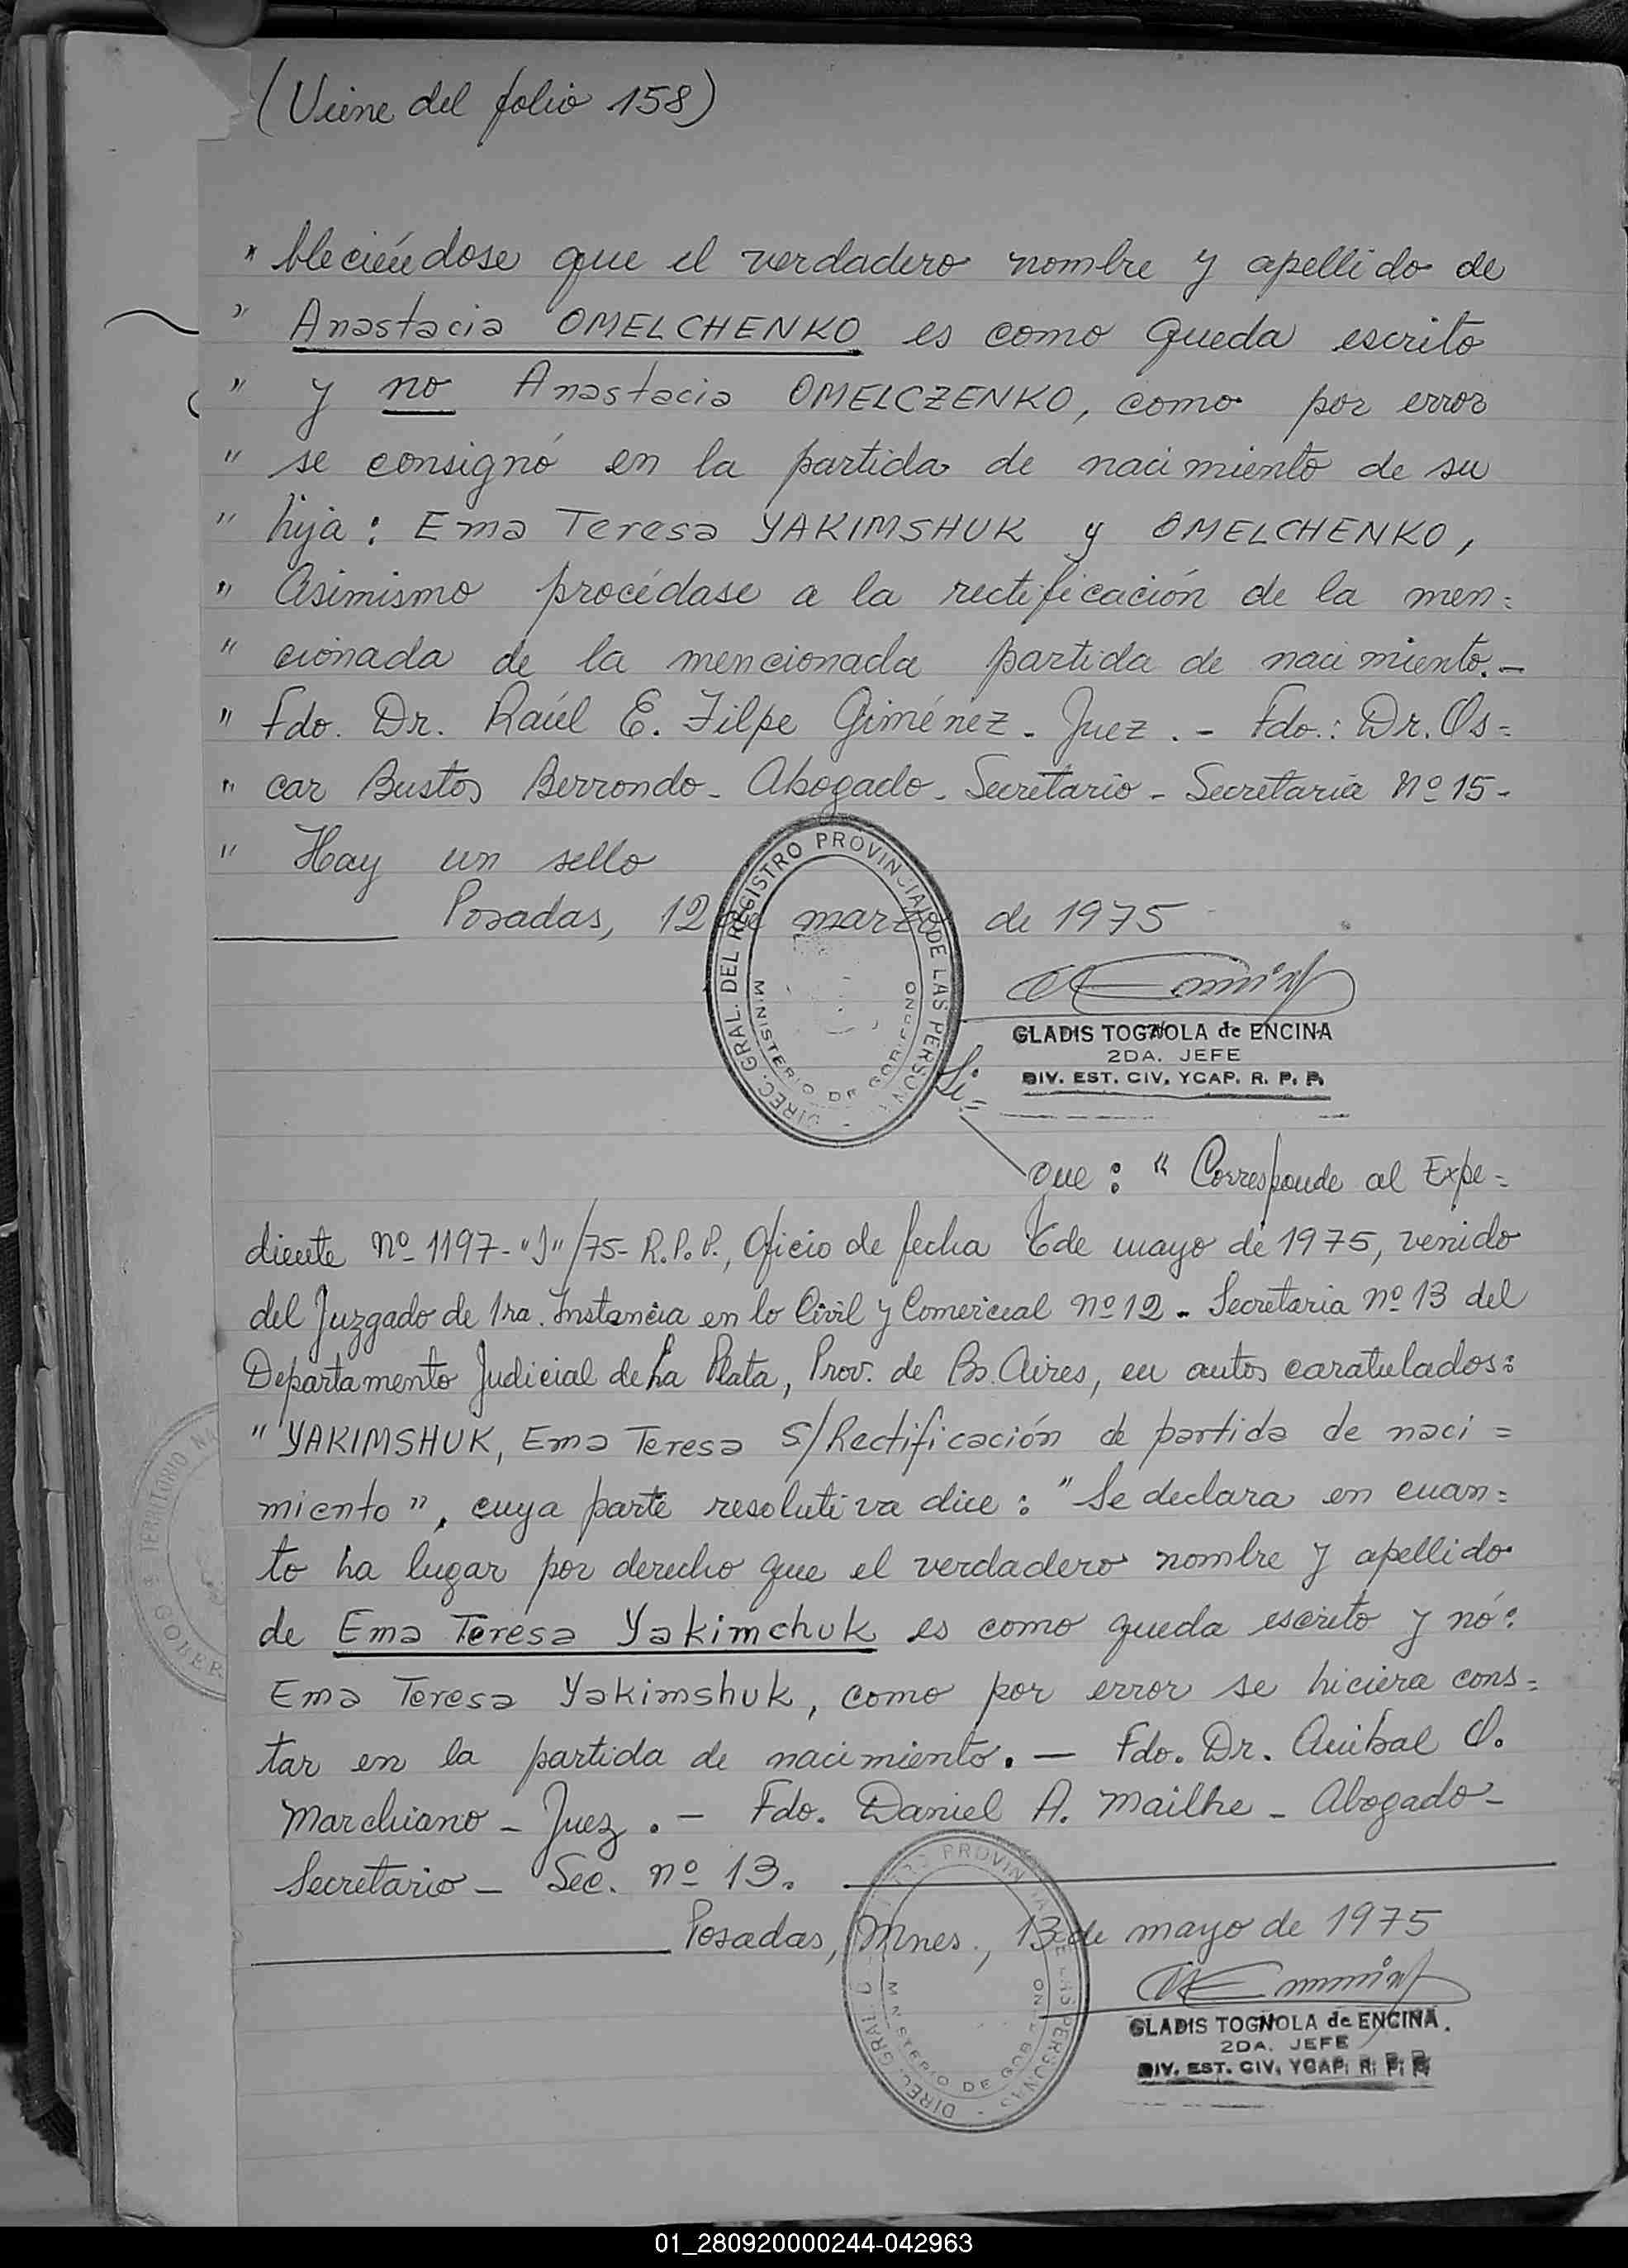 (Viene del folio 158)
" bleciéndose que el verdadero nombre y apellido de
" Anastacia OMELCHENKO es como queda escrito
" y no Anastacia OMELCZENKO, como por error
" se consignó en la partida de nacimiento de su
" hija: Ema Teresa YAKIMSHUK y OMELCHENKO,
" Asimismo procédase a la rectificación de la men=
" cionada de la mencionada partida de nacimiento.—
" Fdo. Dr. Raúl E. Filpe Giménez - Juez . - Fdo.: Dr. Os=
" car Bustos Berrondo - Abogado - Secretario - Secretaría Nº 15 -
" Hay un sello
Posadas, 12 de marzo de 1975
DIREC. GRAL. DEL REGISTRO PROVINCIAL DE LAS PERSONAS
MINISTERIO DE GOBIERNO
GLADIS TOGNOLA de ENCINA
2DA. JEFE
DIV. EST. CIV. Y CAP. R. P. P.
que: " Corresponde al Expe=
diente nº 1197-"J"/75- R.P.P., Oficio de fecha 6 de mayo de 1975, venido
del Juzgado de 1ra. Instancia en lo Civil y Comercial nº 12 - Secretaria nº 13 del
Departamento Judicial de La Plata, Prov. de Bs. Aires, en autos caratulados:
"YAKIMSHUK, Ema Teresa S/Rectificación de partida de naci=
miento", cuya parte resolutiva dice: "Se declara en cuan=
to ha lugar por derecho que el verdadero nombre y apellido
de Ema Teresa Yakimchuk es como queda escrito y nó:
Ema Teresa Yakimshuk, como por error se hiciera cons=
tar en la partida de nacimiento. — Fdo. Dr. Anibal O.
Marchiano - Juez . - Fdo. Daniel A. Mailhe - Abogado -
Secretario - Sec. nº 13.
Posadas, Mnes., 13 de mayo de 1975
DIREC. GRAL. PROVIN LAS PERSONAS
MINISTERIO DE GOB
GLADIS TOGNOLA de ENCINA.
2DA. JEFE
DIV. EST. CIV. Y CAP. R. P. P.
TERRITORIO NA
GOBER
01_280920000244-042963